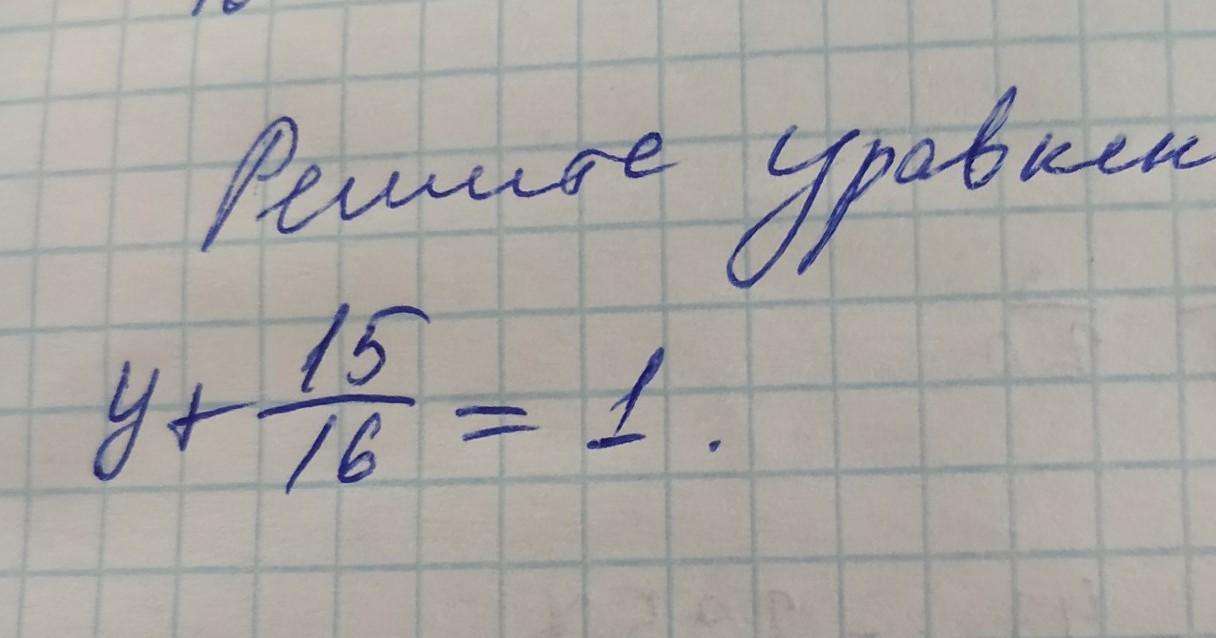 Решите уравнен
y + 15/16 = 1.